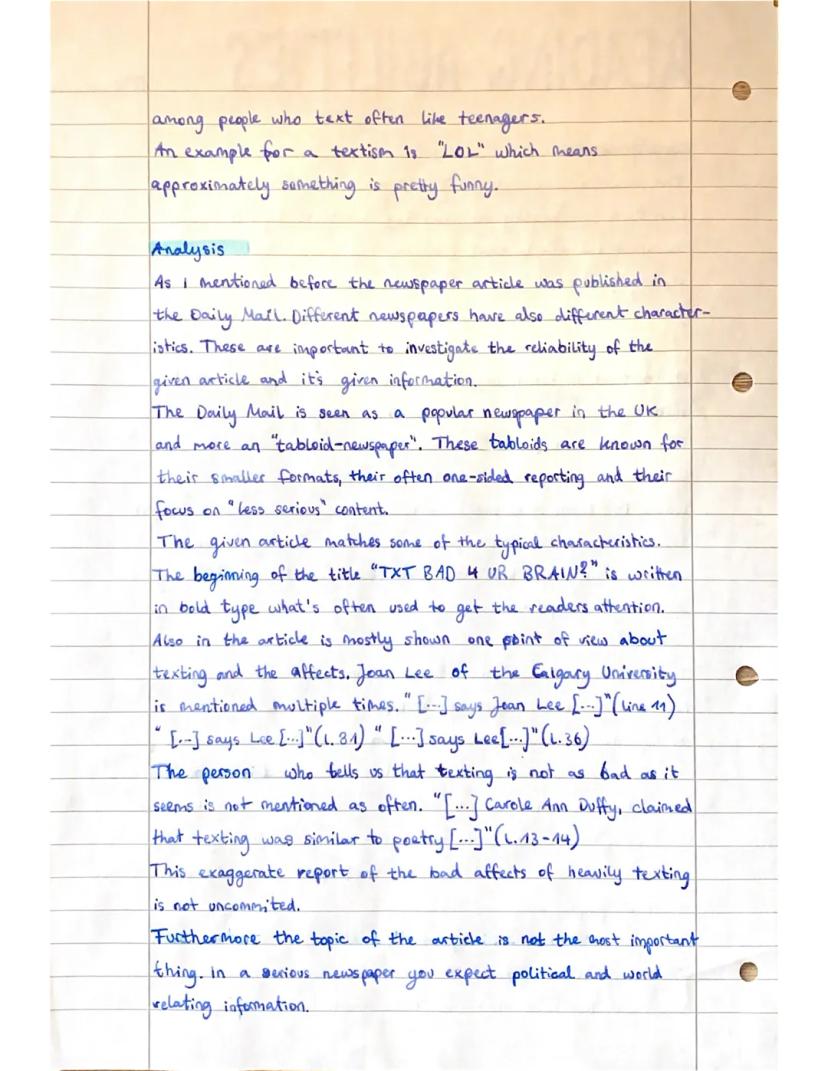 among people who text often like teenagers.
An example for a textism is "LOL" which means
approximately something is pretty funny.
Analysis
As I mentioned before the newspaper article was published in
the Daily Mail. Different newspapers have also different character-
istics. These are important to investigate the reliability of the
given article and it's given information.
The Daily Mail is seen as a popular newspaper in the UK
and more an "tabloid-newspaper". These tabloids are known for
their smaller formats, their often one-sided reporting and their
focus on "less serious" content.
The given article matches some of the typical characteristics.
The beginning of the title "TXT BAD 4 UR BRAIN?" is written
in bold type what's often used to get the readers attention.
Also in the article is mostly shown one point of view about
texting and the affects. Joan Lee of the Calgary University
is mentioned multiple times. "[...] says Joan Lee [...]" (line 11)
"[...] says Lee [...]" (L.31) "[...] says Lee [...]" (L.36)
The person who tells us that texting is not as bad as it
seems is not mentioned as often. "[...] Carole Ann Duffy, claimed
that texting was similar to poetry [...]" (L.13-14)
This exaggerate report of the bad affects of heavily texting
is not uncommited.
Furthermore the topic of the article is not the most important
thing. In a serious newspaper you expect political and world
relating information.